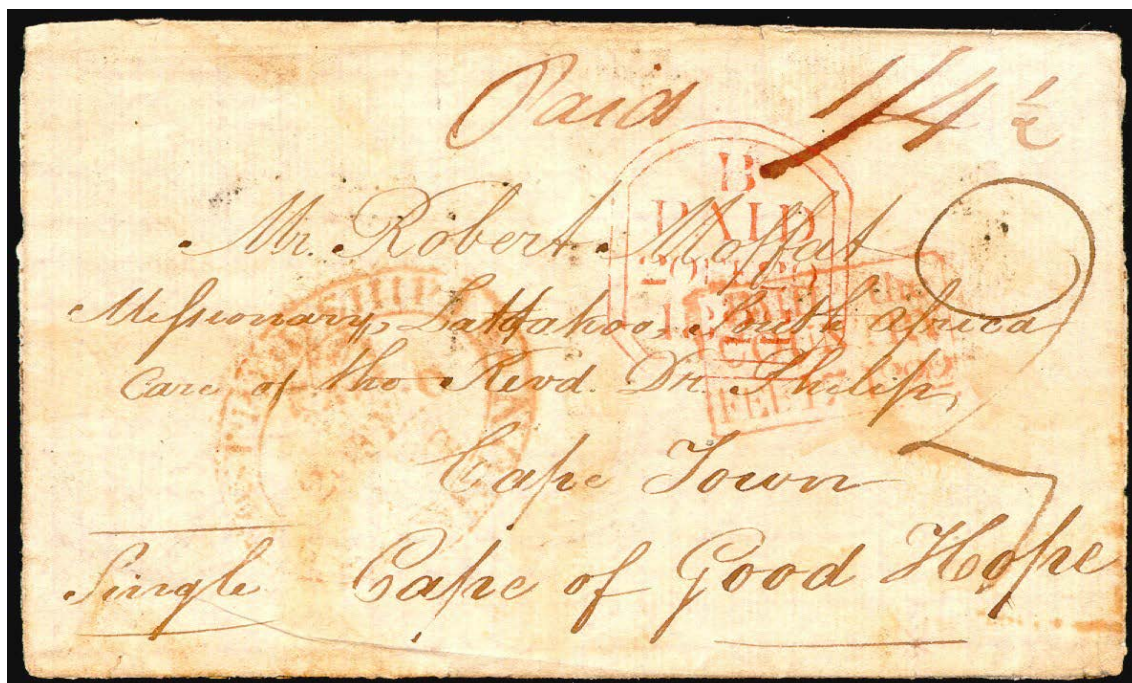 Paid 1/4 ½
B
PAID
1822
Mr. Robert Moffat
Missionary, Lattakoo, South Africa
Care of the Revd. Dr. Philip,
Cape Town
Single Cape of Good Hope
SHIP
FEB